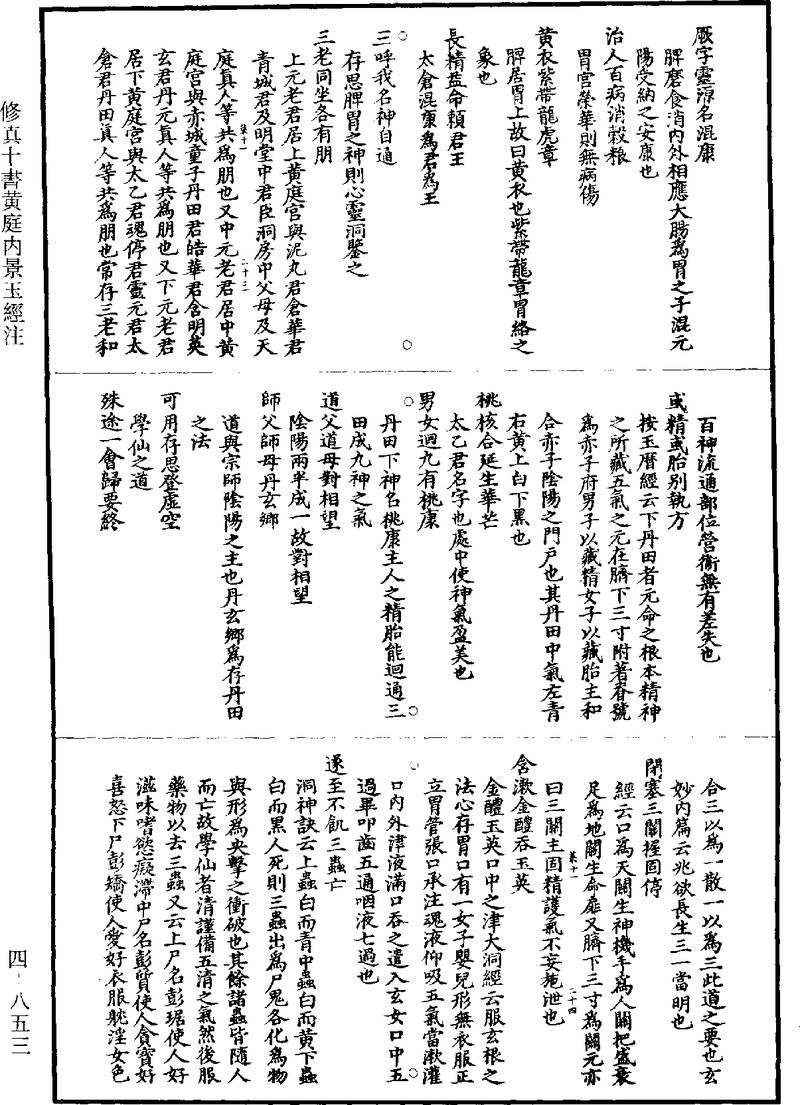 修真十書黃庭內景玉經注
四-八五三
厥字靈源名混康
脾磨食消內外相應大腸為胃之子混元
陽受納之安康也
治人百病消穀粮
胃宮榮華則無病傷
黃衣紫帶龍虎章
脾居胃上故曰黃衣也紫帶龍章胃絡之
象也
長精益命賴君王
太倉混康為君為王
三呼我名神自通
存思脾胃之神則心靈洞鑒之
三老同坐各有朋
上元老君居上黃庭宮與泥丸君倉華君
青城君及明堂中君臣洞房中父母及天
庭真人等共為朋也又中元老君居中黃
菜十一
二十三
庭宮與赤城童子丹田君皓華君含明英
玄君丹元真人等共為朋也又下元老君
居下黃庭宮與太乙君魂停君靈元君太
倉君丹田真人等共為朋也常存三老和
百神流通部位營衛無有差失也
或精或胎別執方
按玉曆經云下丹田者元命之根本精神
之所藏五氣之元在臍下三寸附著脊號
為赤子府男子以藏精女子以藏胎主和
合赤子陰陽之門戶也其丹田中氣左青
右黃上白下黑也
桃核合延生華芒
太乙君名字也處中使神氣盈美也
男女迴九有桃康
丹田下神名桃康主人之精胎能迴通三
田成九神之氣
道父道母對相望
陰陽兩半成一故對相望
師父師母丹玄鄉
道與宗師陰陽之主也丹玄鄉為存丹田
之法
可用存思登虛空
學仙之道
殊途一會歸要終
合三以為一散一以為三此道之要也玄
妙內篇云兆欲長生三一當明也
閉塞三關握固停
經云口為天關生神機手為人關把盛衰
足為地關生命扉又臍下三寸為關元亦
菜十一
二十四
曰三關主固精護氣不妄施泄也
含漱金醴吞玉英
金醴玉英口中之津大洞經云服玄根之
法心存胃口有一女子嬰兒形無衣服正
立胃管張口承注魂液仰吸五氣當漱灌
口內外津液滿口吞之遣入玄女口中五
過畢叩齒五通咽液七過也
遂至不飢三蟲亡
洞神訣云上蟲白而青中蟲白而黃下蟲
白而黑人死則三蟲出為尸鬼各化為物
與形為殃擊之衝破也其餘諸蟲皆隨人
而亡故學仙者清謹備五清之氣然後服
藥物以去三蟲又云上尸名彭琚使人好
滋味嗜慾癡滯中尸名彭質使人貪寶好
喜怒下尸彭矯使人愛好衣服躭淫女色